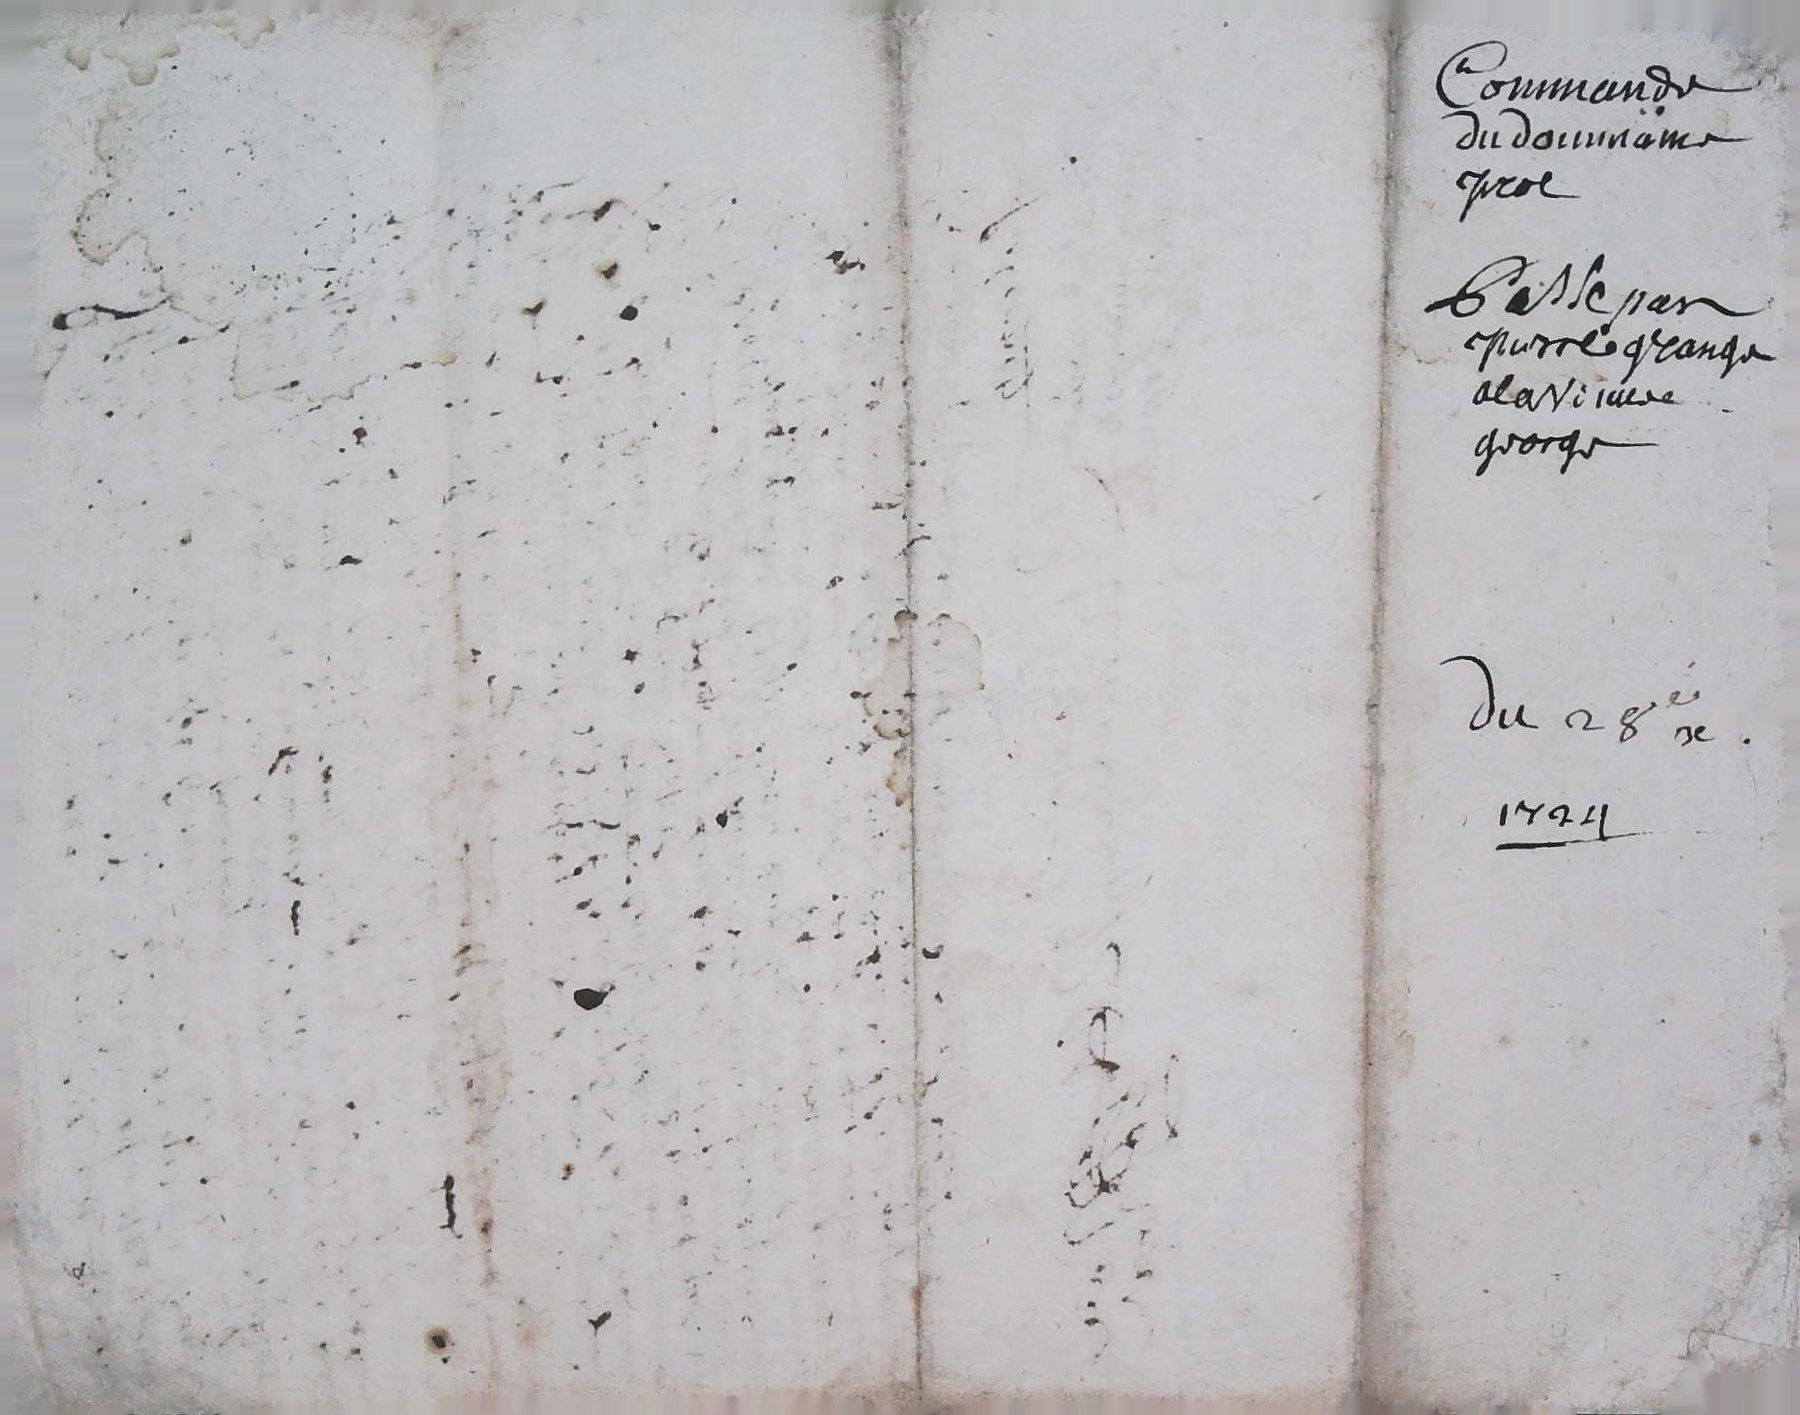 Commande
du domaine
prol
Passe par
pierre grange
a la Vi
george
Du 28e
1724